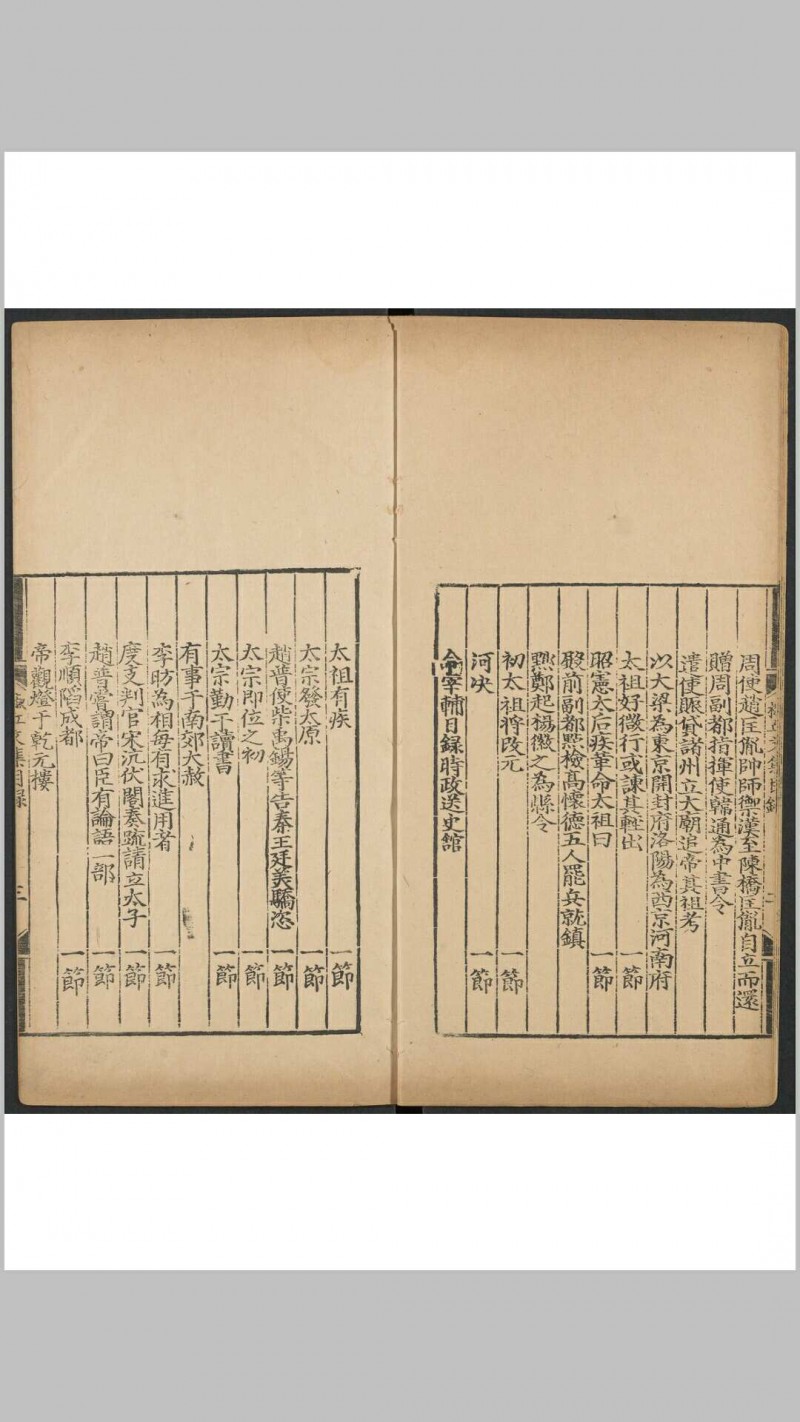 周使趙匡胤帥師禦漢至陳橋匡胤自立而還
贈周副都指揮使韓通為中書令
遣使賑貸諸州立太廟追帝其祖考
以大梁為東京開封府洛陽為西京河南府
太祖好微行或諫其輕出 一節
昭憲太后疾革命太祖曰 一節
殿前副都點檢高懷德五人罷兵就鎮
黜鄭起楊徽之為縣令
初太祖將改元 一節
河決 一節
命宰輔日錄時政送史館
太祖有疾 一節
太宗發太原 一節
趙普使柴禹錫等告秦王廷美驕恣 一節
太宗即位之初 一節
太宗勤于讀書 一節
有事于南郊大赦
李昉為相每有求進用者 一節
度支判官宋沆伏閤奏疏請立太子 一節
趙普嘗謂帝曰臣有論語一部 一節
李順陷成都 一節
帝觀燈于乾元樓
文集目錄 三